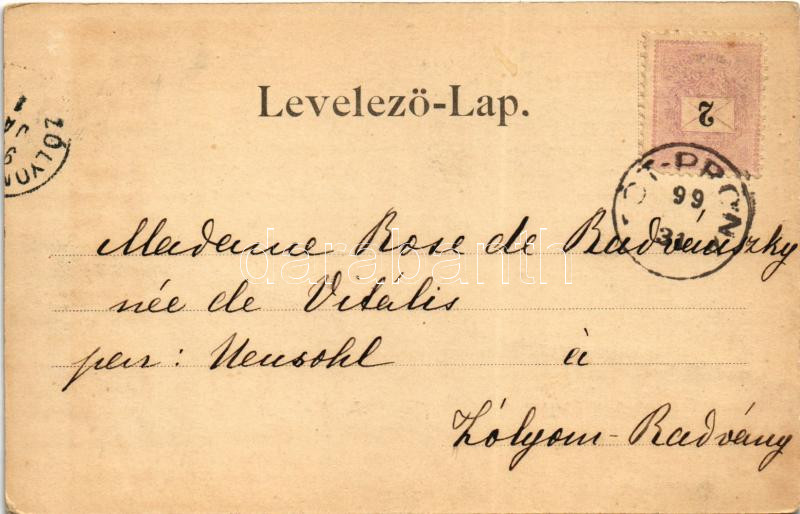 Levelező-Lap.
2
TÓT-PRÓN
99
31
ZÓLYOM
JA
Madame Rose de Radvánszky
née de Vitális
per: Neusohl à
Zólyom-Radvány
darabanth